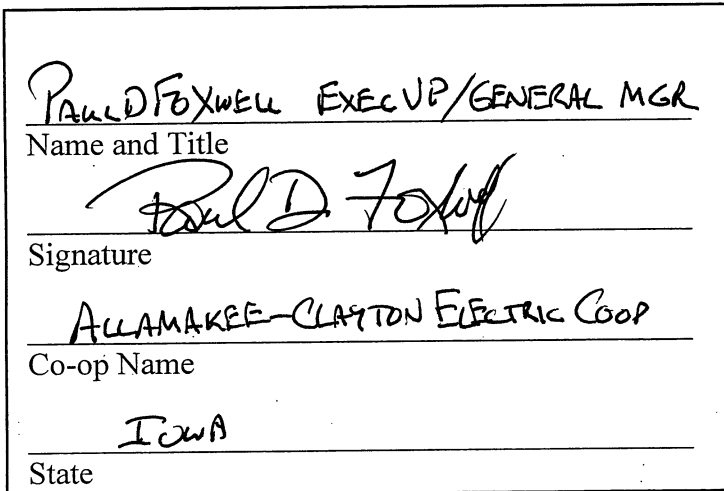 PAUL D FOXWELL EXEC VP/GENERAL MGR
Name and Title
Paul D. Foxwell
Signature
ALLAMAKEE-CLAYTON ELECTRIC COOP
Co-op Name
IOWA
State